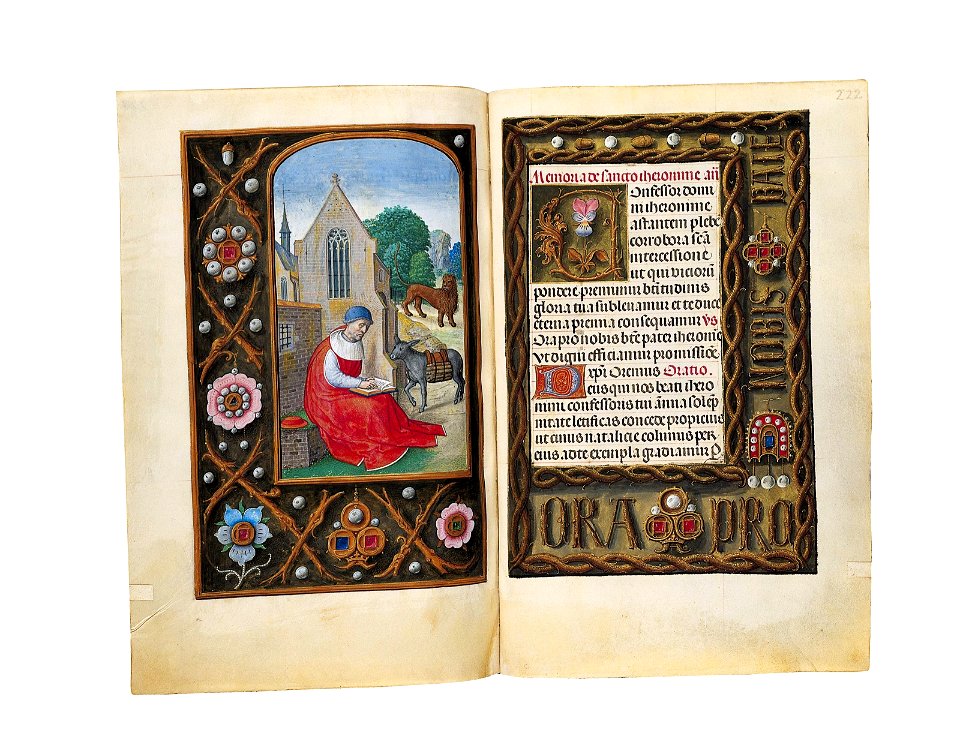 222
Memoria de sancto iheronime añ
Onfessor domi
ni iheronime
astantem plebē
corrobora scā
intercessione
ut qui viciorū
pondere premimur bt̄itudinis
gloria tua subleuamur et te duce
eterna premia consequamur vs
Ora pro nobis btē pater iheronime
Vt digni efficiamur promissiōe
xp̄i Oremus Oratio.
Deus qui nos beati ihero
nimi confessoris tui
letificas concede propicius
ut cuius natalicia colimus per
eius ad te exempla gradiamur P
ORA PRO
NOBIS